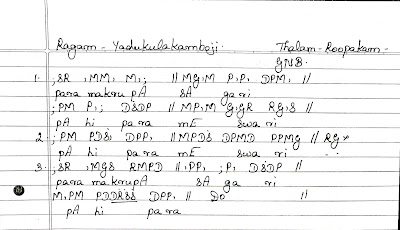 Ragam - Yadukulakamboji. Thalam - Roopakam -
GNB.
1. ; SR , MM, M, ; // MG, M P, P, DPM, //
para makru pA sA ga ri
; PM P, ; DSDP // MP, M G, GR RG, S //
pA hi para mE swa ri
2. ; PM PDS, DPP, // MPDS DPMD PPMG // RG
pA hi para mE swa ri
3. ; SR , MGS RMPD // , PP, ; P, DSDP //
para makrupA sA ga ri
M, PM PDDRSS DPP, // Do //
pA hi para